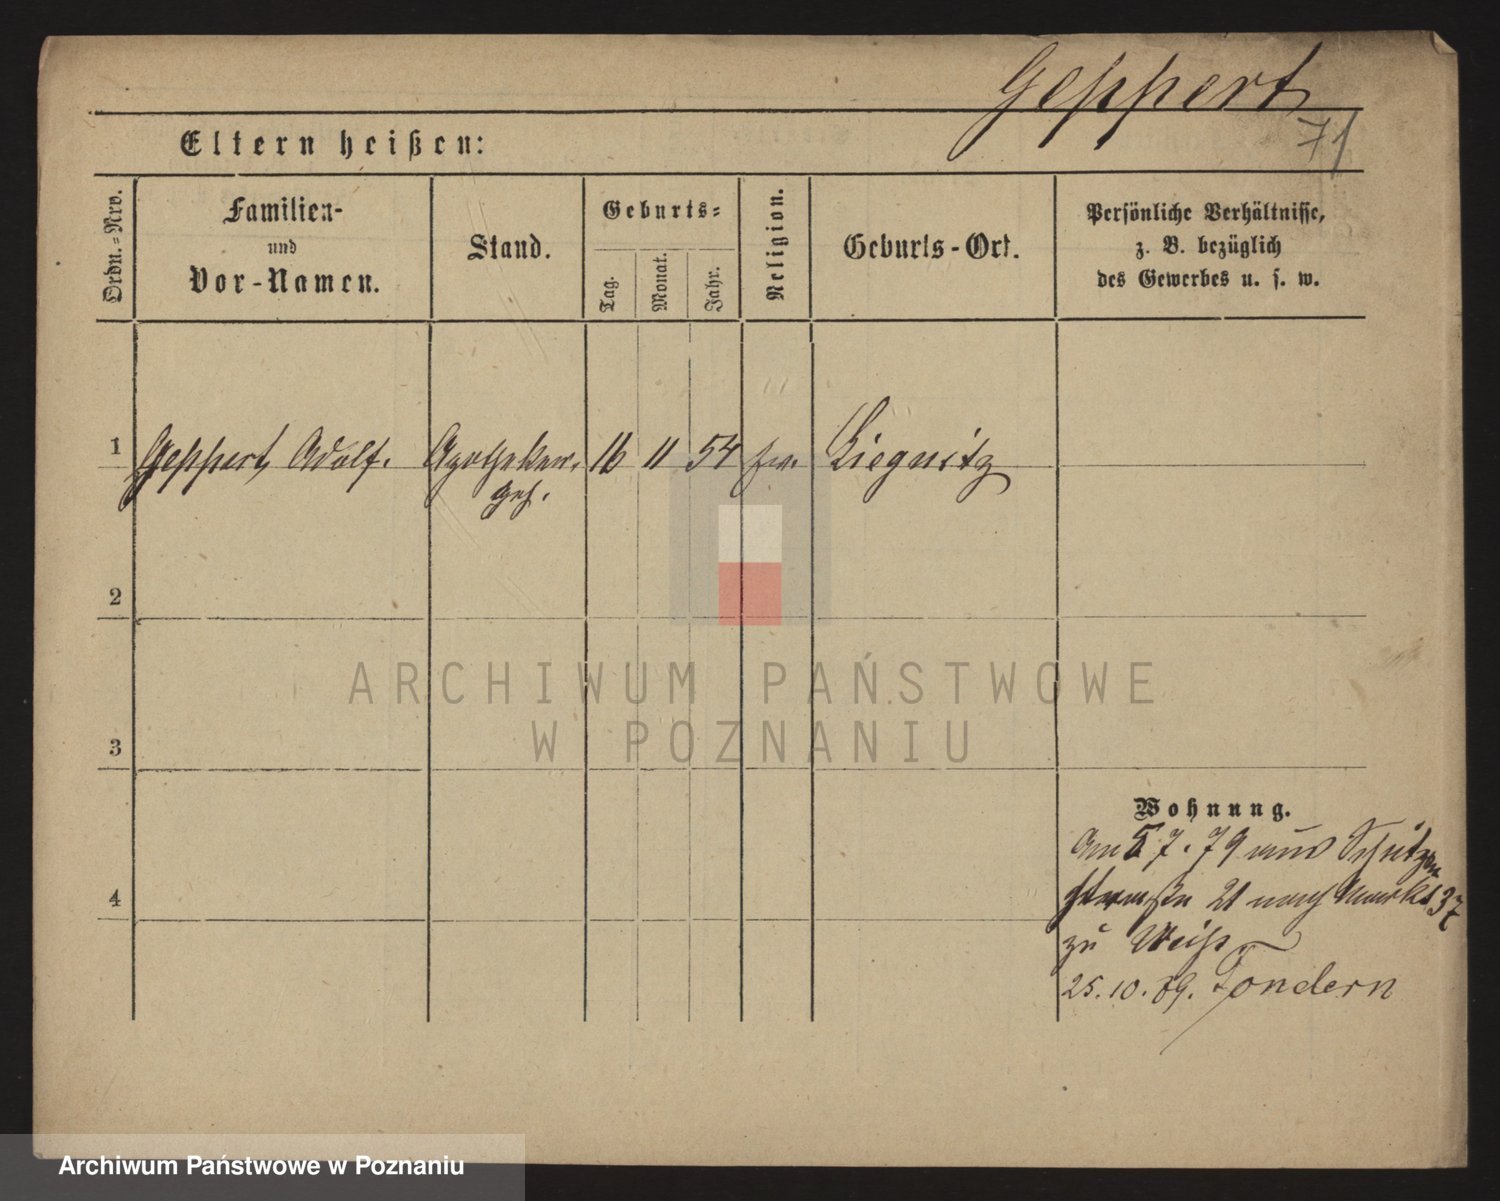 Geppert
71
Eltern heißen:
Ordn.-Nro.
Familien-
und
Vor-Namen.
Stand.
Geburts-
Tag.
Monat.
Jahr.
Religion.
Geburts-Ort.
Persönliche Verhältnisse,
z. B. bezüglich
des Gewerbes u. s. w.
1 Geppert, Adolf. Apotheker- 16 11 54 ev. Liegnitz
geh.
2
ARCHIWUM PAŃSTWOWE
W POZNANIU
3
Wohnung.
Am 5 7. 79 aus Schützen
straße 21 nach Markt 37
4
zu Weiß
25.10.89. Tondern
Archiwum Państwowe w Poznaniu